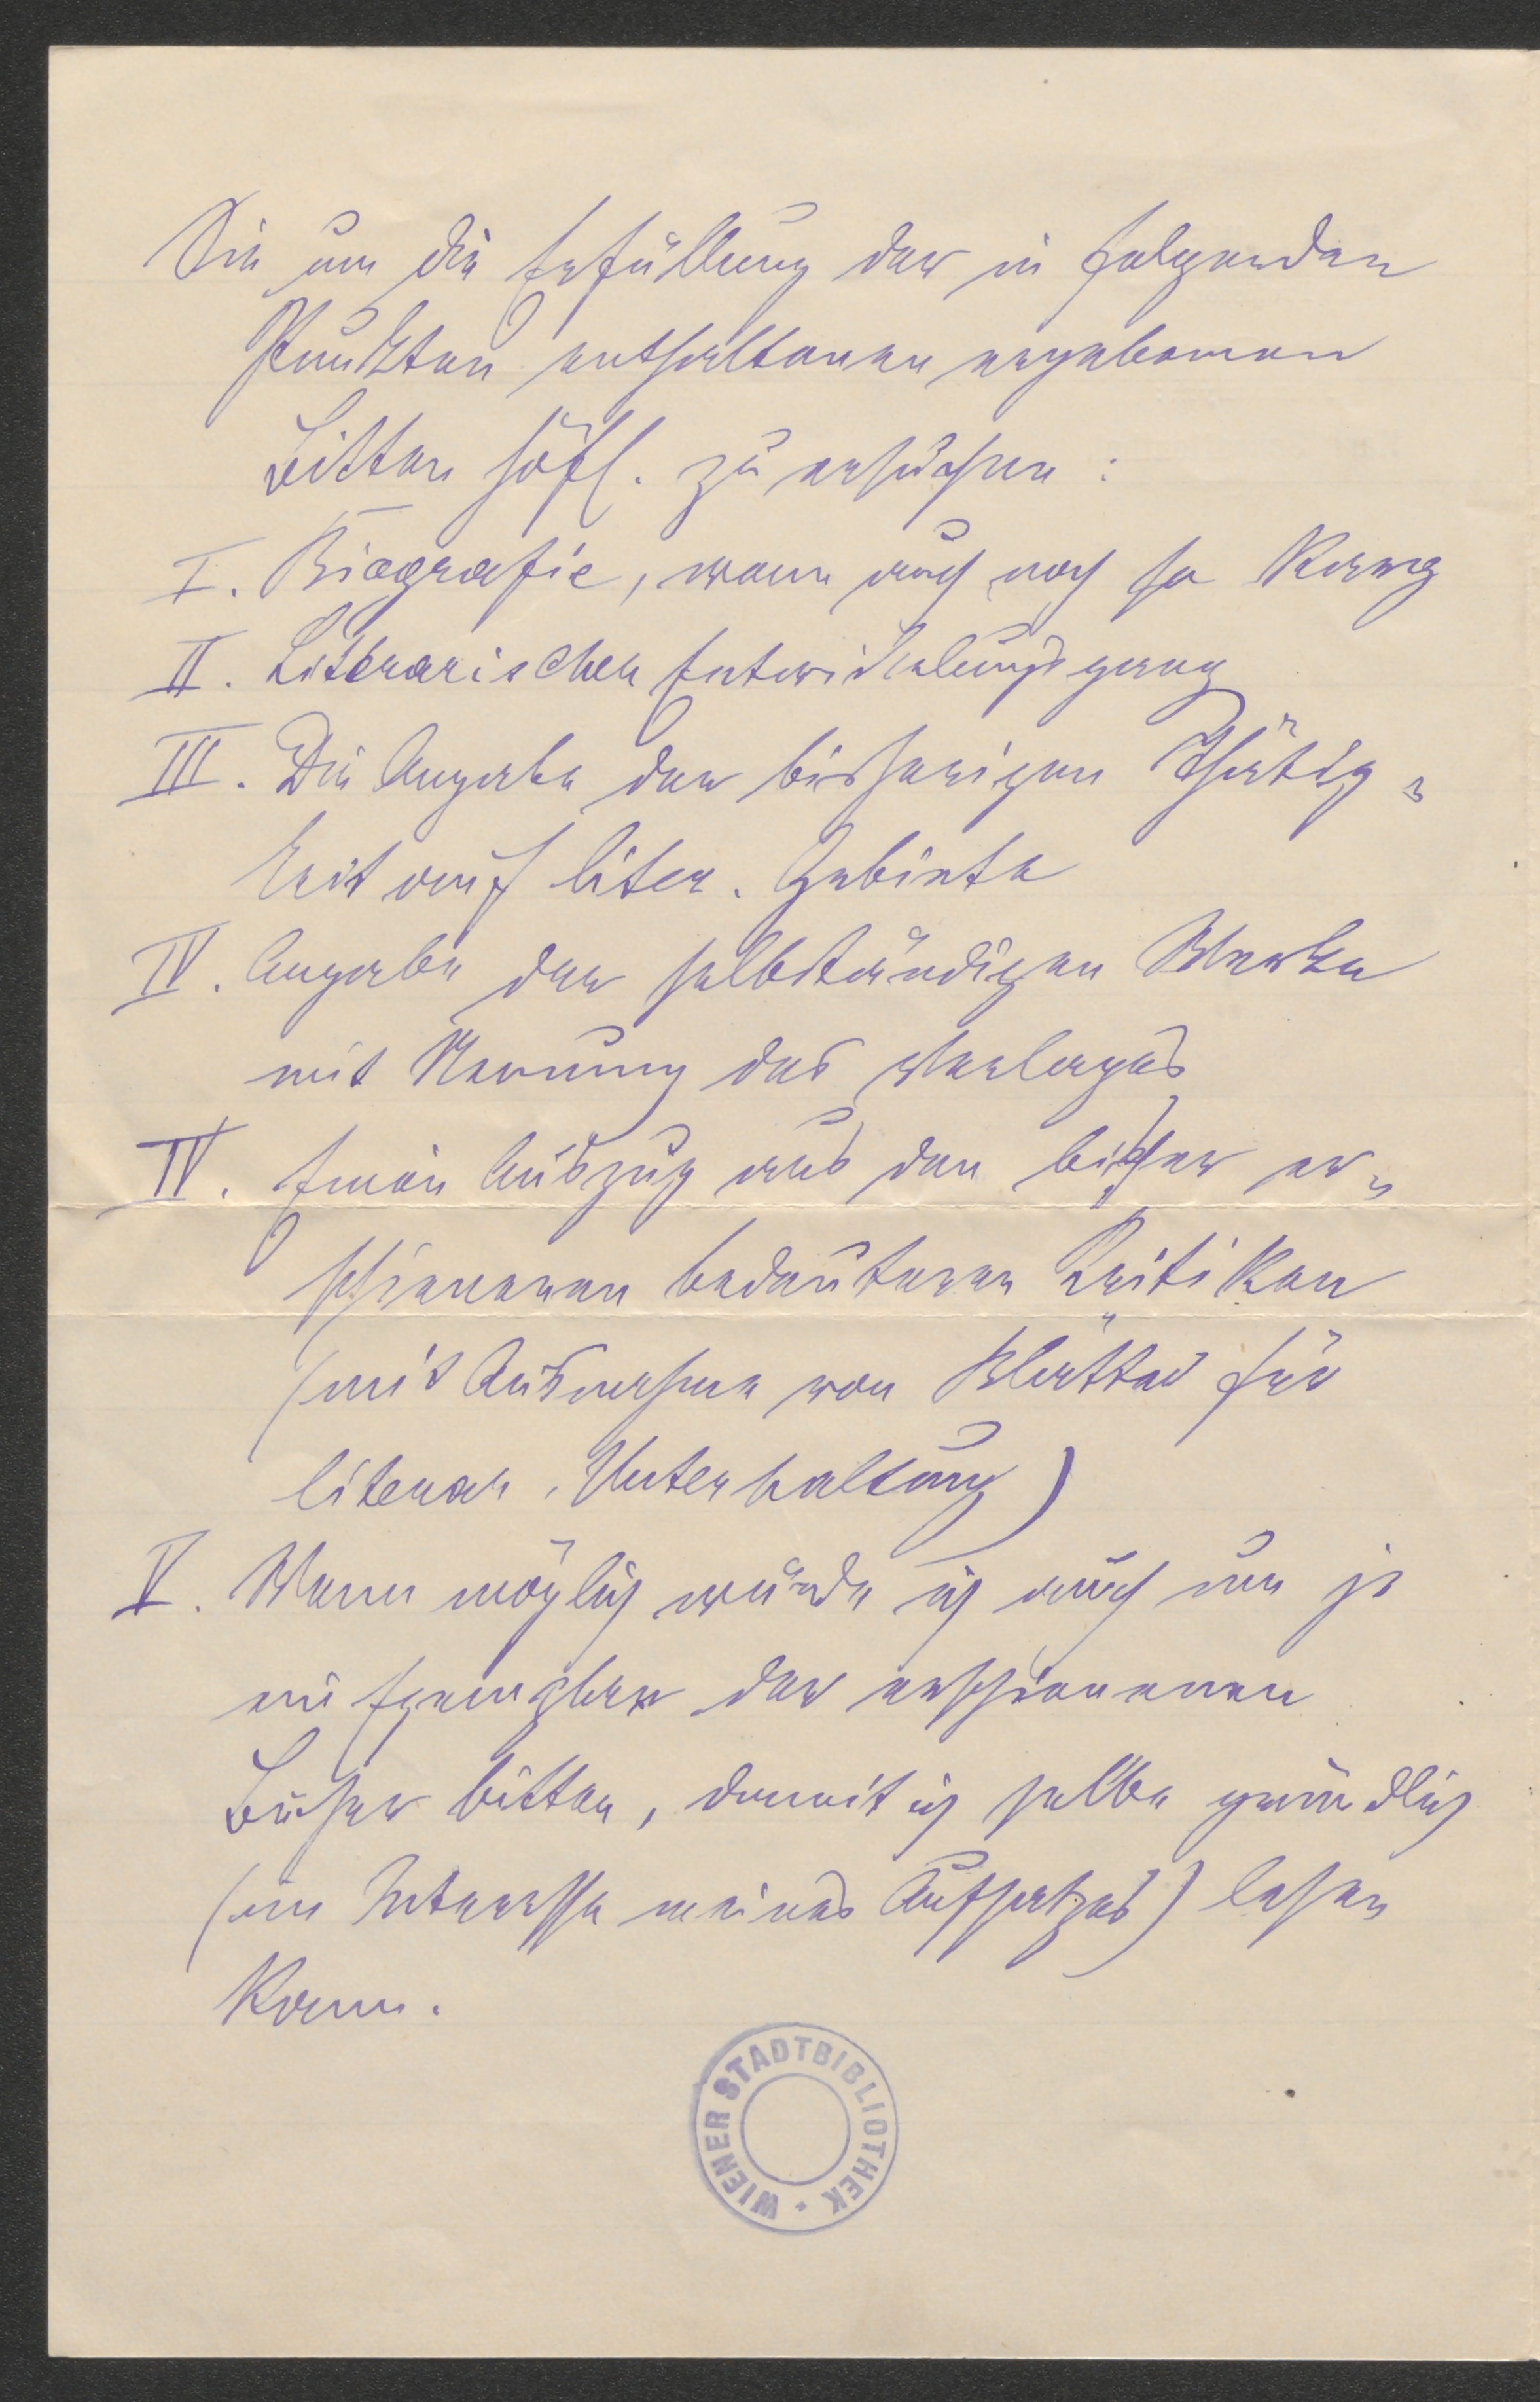 Sie um die Erfüllung der in folgenden
Punkten enthaltenen ergebenen
Bitten höfl. zu ersuchen:
I. Biografie, wenn auch noch so karg
II. Litterarischer Entwickelungsgang
III. Die Angabe der bisherigen Thätig=
keit auf liter. Gebiete
IV. Angabe der selbständigen Werke
mit Nennung des Verlages
IV. Einen Auszug aus den bisher er=
schienenen bedeutenen Kritiken
(mit Ausnahme von Blätter für
literar. Unterhaltung)
V. Wenn möglich würde ich auch um je
ein Exemplar der erschienenen
Bücher bitten, damit ich selbe gründlich
(im Interesse meines Aufsatzes) lesen
kann.
WIENER STADTBIBLIOTHEK *